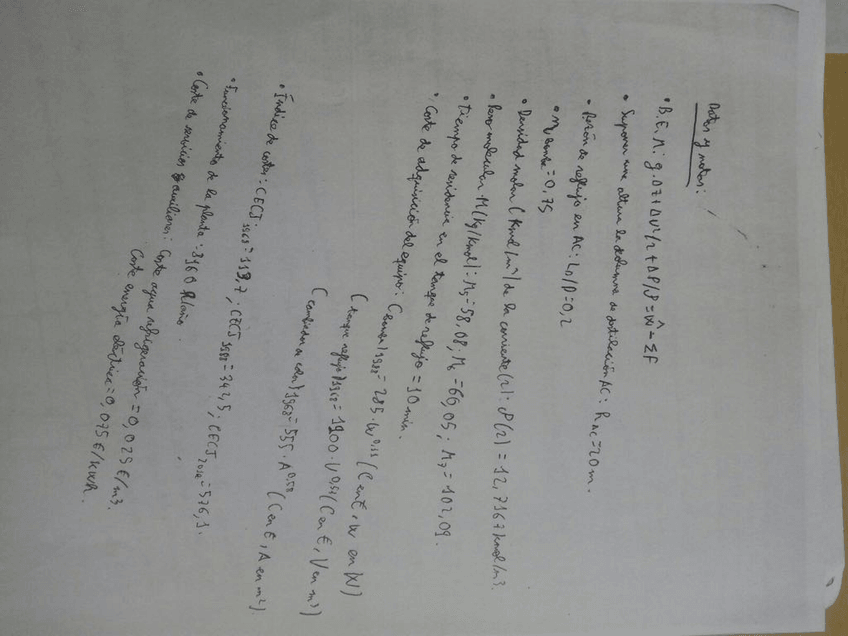 Datos y notas:
• B.E.M.: g·ΔZ+Δv²/2+ΔP/ρ=Ŵ-ΣF
• Suponer una altura la columna de destilación AC: h_AC=20m.
• Razón de reflujo en AC: L0/D=0,2
• η bomba=0,75
• Densidad molar (Kmol/m³) de la corriente (2): ρ(2)=12,7167 kmol/m³.
• Peso molecular M(Kg/Kmol): M5=58,08; M6=60,05; M7=102,09.
• Tiempo de residencia en el tanque de reflujo=10 min.
• Coste de adquisición del equipo: C bomba)1988=285·W^0,53 (C en €, W en W)
C tanque reflujo)1968=1900·V^0,64 (C en €, V en m³)
C cambiador de calor)1968=555·A^0,58 (C en €, A en m²).
• Índice de costes: CECI 1968=113,7; CECI 1988=342,5; CECI 2014=576,1.
• Funcionamiento de la planta: 8160 h/año.
• Coste de servicios auxiliares: Coste agua refrigeración=0,029€/m3.
Coste energía eléctrica=0,075€/kWh.